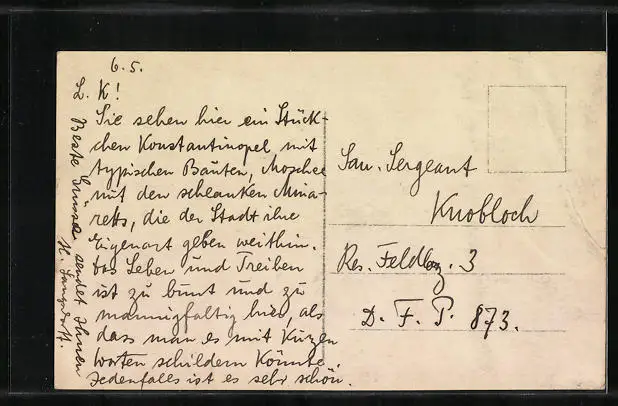 6.5.
L. K!
Sie sehen hier ein Stück-
chen Konstantinopel mit
typischen Bauten, Moschee
mit den schlanken Mina-
retts, die der Stadt ihre
Eigenart geben weithin.
Das Leben und Treiben
ist zu bunt und zu
mannigfaltig hier, als
dass man es mit kurzen
Worten schildern könnte.
Jedenfalls ist es sehr schön.
Beste Grüsse sendet Ihnen
H.
San. Sergeant
Knobloch
Res. Feldlaz. 3
D. F. P. 873.